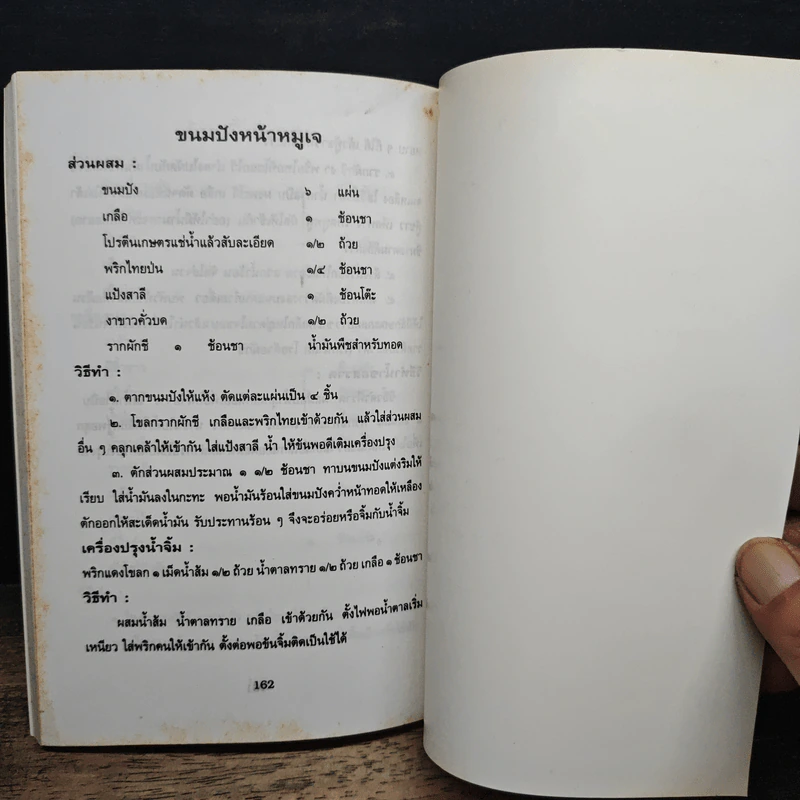 ขนมปังหน้าหมูเจ
ส่วนผสม :
ขนมปัง ๖ แผ่น
เกลือ ๑ ช้อนชา
โปรตีนเกษตรแช่น้ำแล้วสับละเอียด ๑/๒ ถ้วย
พริกไทยป่น ๑/๔ ช้อนชา
แป้งสาลี ๑ ช้อนโต๊ะ
งาขาวคั่วบด ๑/๒ ถ้วย
รากผักชี ๑ ช้อนชา น้ำมันพืชสำหรับทอด
วิธีทำ :
๑. ตากขนมปังให้แห้ง ตัดแต่ละแผ่นเป็น ๔ ชิ้น
๒. โขลกรากผักชี เกลือและพริกไทยเข้าด้วยกัน แล้วใส่ส่วนผสม
อื่น ๆ คลุกเคล้าให้เข้ากัน ใส่แป้งสาลี น้ำ ให้ข้นพอดีเติมเครื่องปรุง
๓. ตักส่วนผสมประมาณ ๑ ๑/๒ ช้อนชา ทาบนขนมปังแต่งริมให้
เรียบ ใส่น้ำมันลงในกะทะ พอน้ำมันร้อนใส่ขนมปังคว่ำหน้าทอดให้เหลือง
ตักออกให้สะเด็ดน้ำมัน รับประทานร้อน ๆ จึงจะอร่อยหรือจิ้มกับน้ำจิ้ม
เครื่องปรุงน้ำจิ้ม :
พริกแดงโขลก ๑ เม็ดน้ำส้ม ๑/๒ ถ้วย น้ำตาลทราย ๑/๒ ถ้วย เกลือ ๑ ช้อนชา
วิธีทำ :
ผสมน้ำส้ม น้ำตาลทราย เกลือ เข้าด้วยกัน ตั้งไฟพอน้ำตาลเริ่ม
เหนียว ใส่พริกคนให้เข้ากัน ตั้งต่อพอข้นจิ้มติดเป็นใช้ได้
162